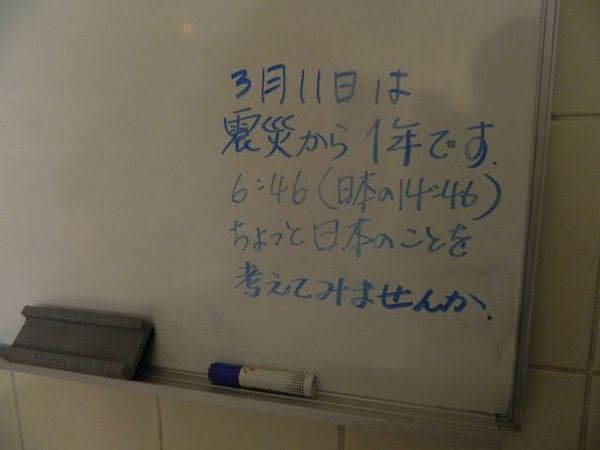 3月11日は
震災から1年です.
6:46(日本の14:46)
ちょっと日本のことを
考えてみませんか.